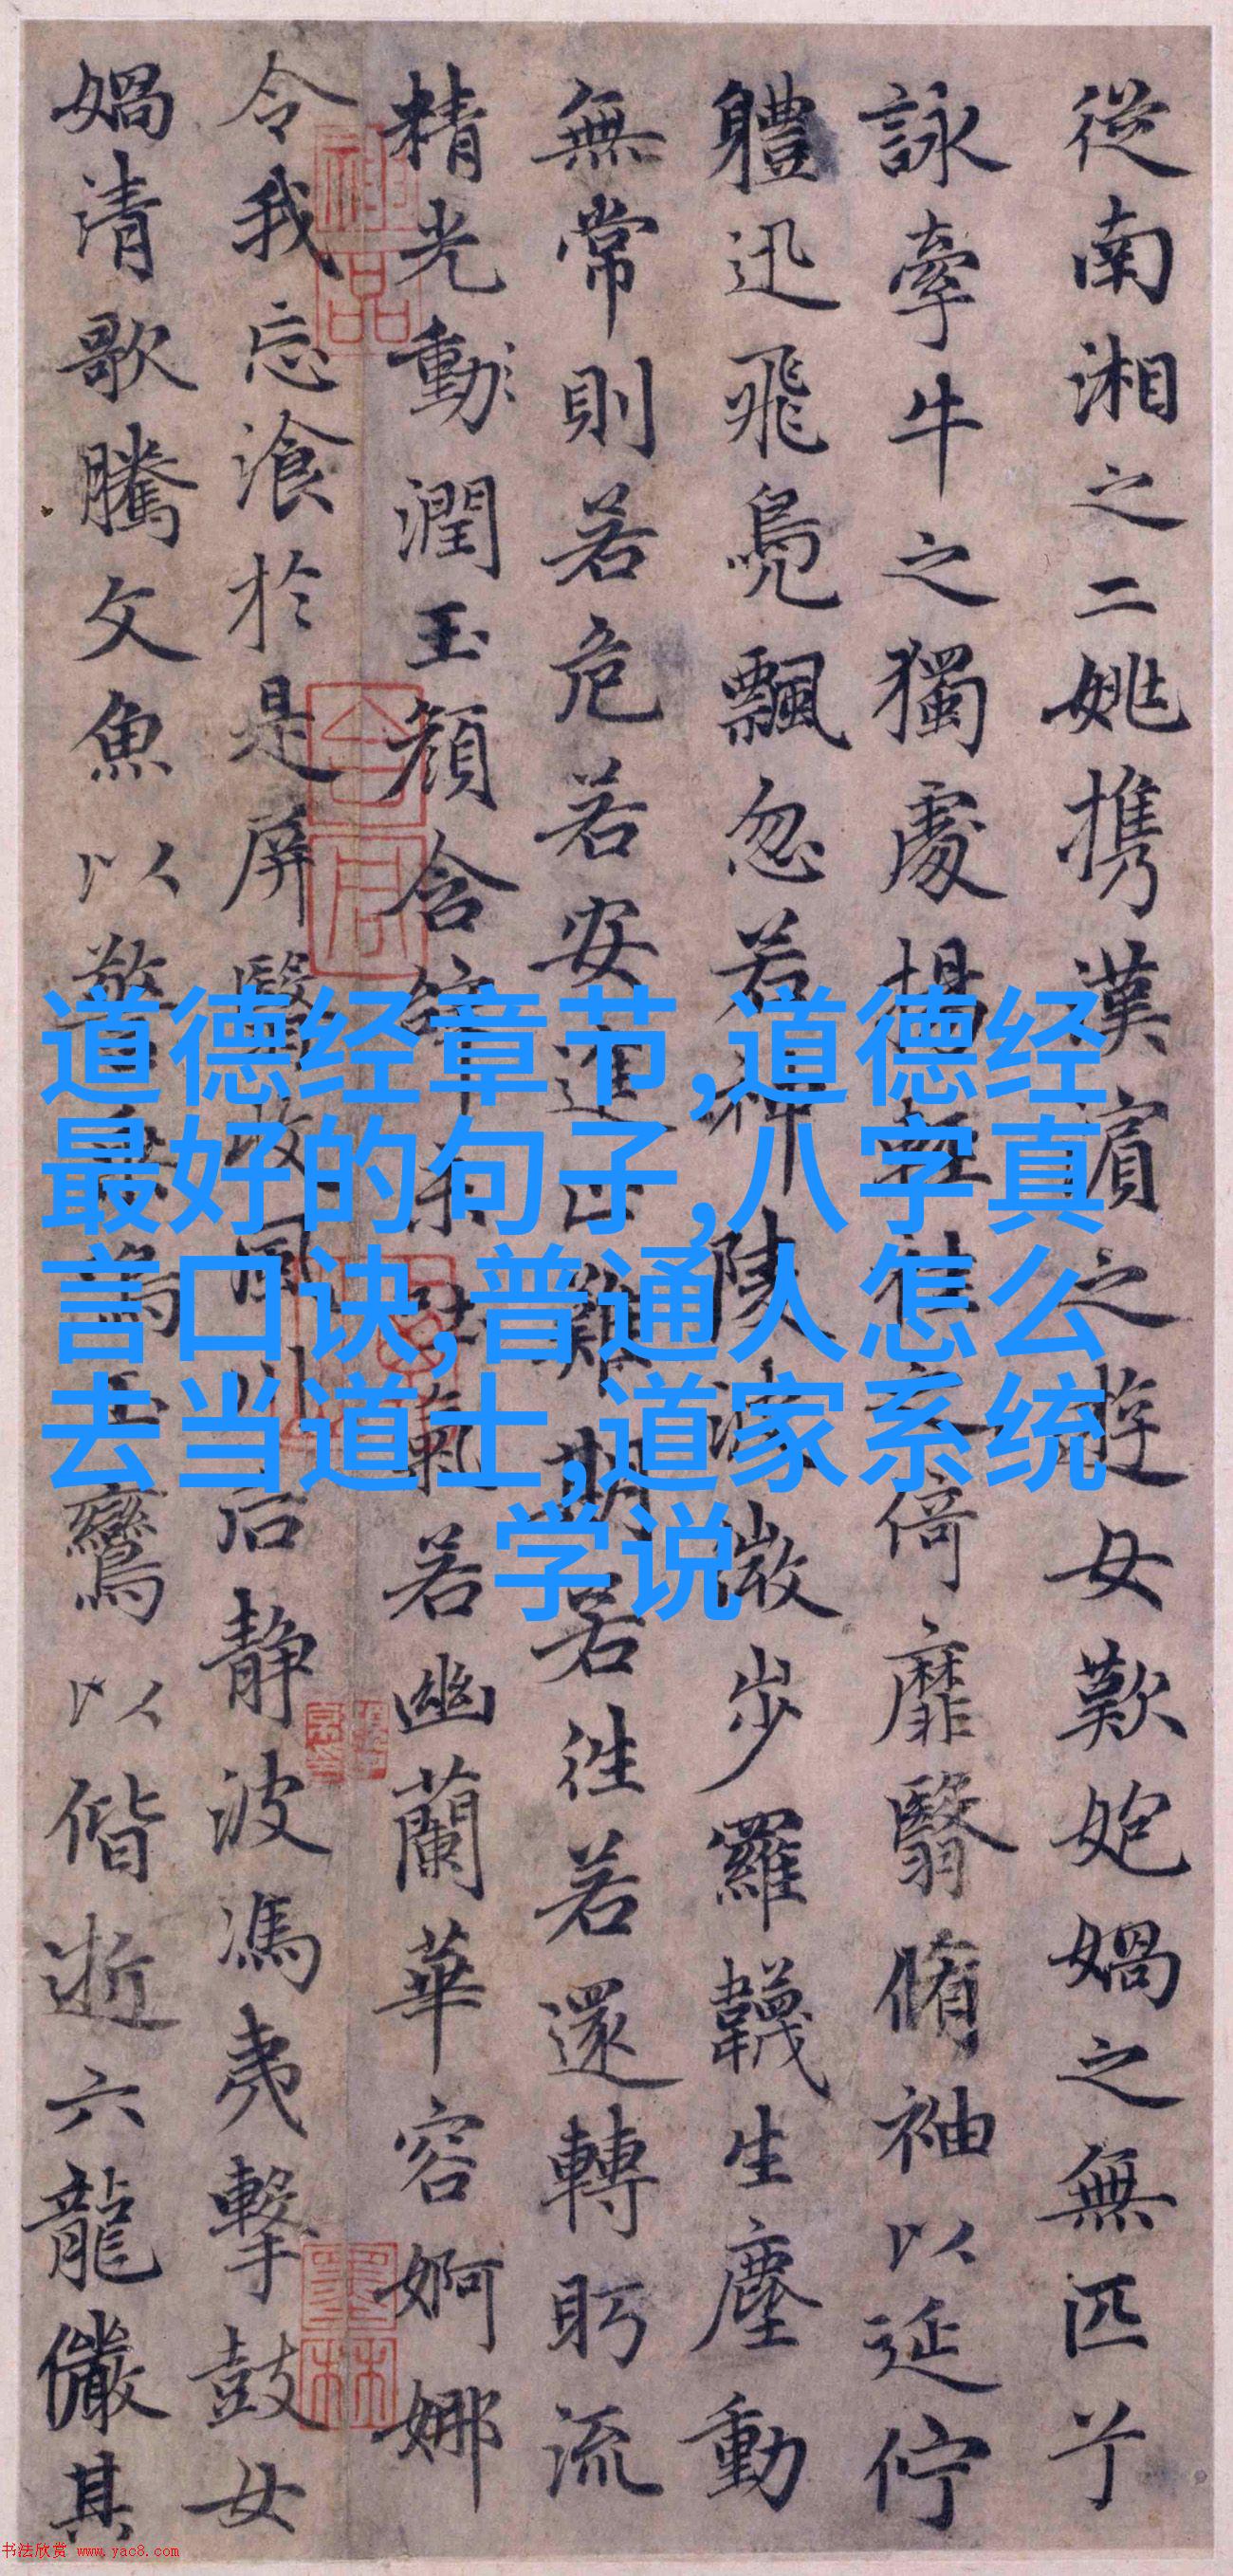 從南湘之二姚携漢濵之游女歎匏媧之無匹兮
詠牽牛之獨處揚輕袿之倚靡翳脩袖以延佇
軆迅飛鳧飄忽若神陵波微步羅韈生塵動
無常則若危若安進止難期若往若還轉眄流
精光動潤玉顏含辭未吐氣若幽蘭華容婀娜
令我忘飡於是屏翳收風川后静波馮夷擊鼓女
媧清歌騰文魚以警乘鳴玉鸞以偕逝六龍儼其
神品
墨林
道德经章节,道德经
最好的句子,八字真
言口诀,普通人怎么
去当道士,道家系统
学说
书法欣赏 www.yac8.com